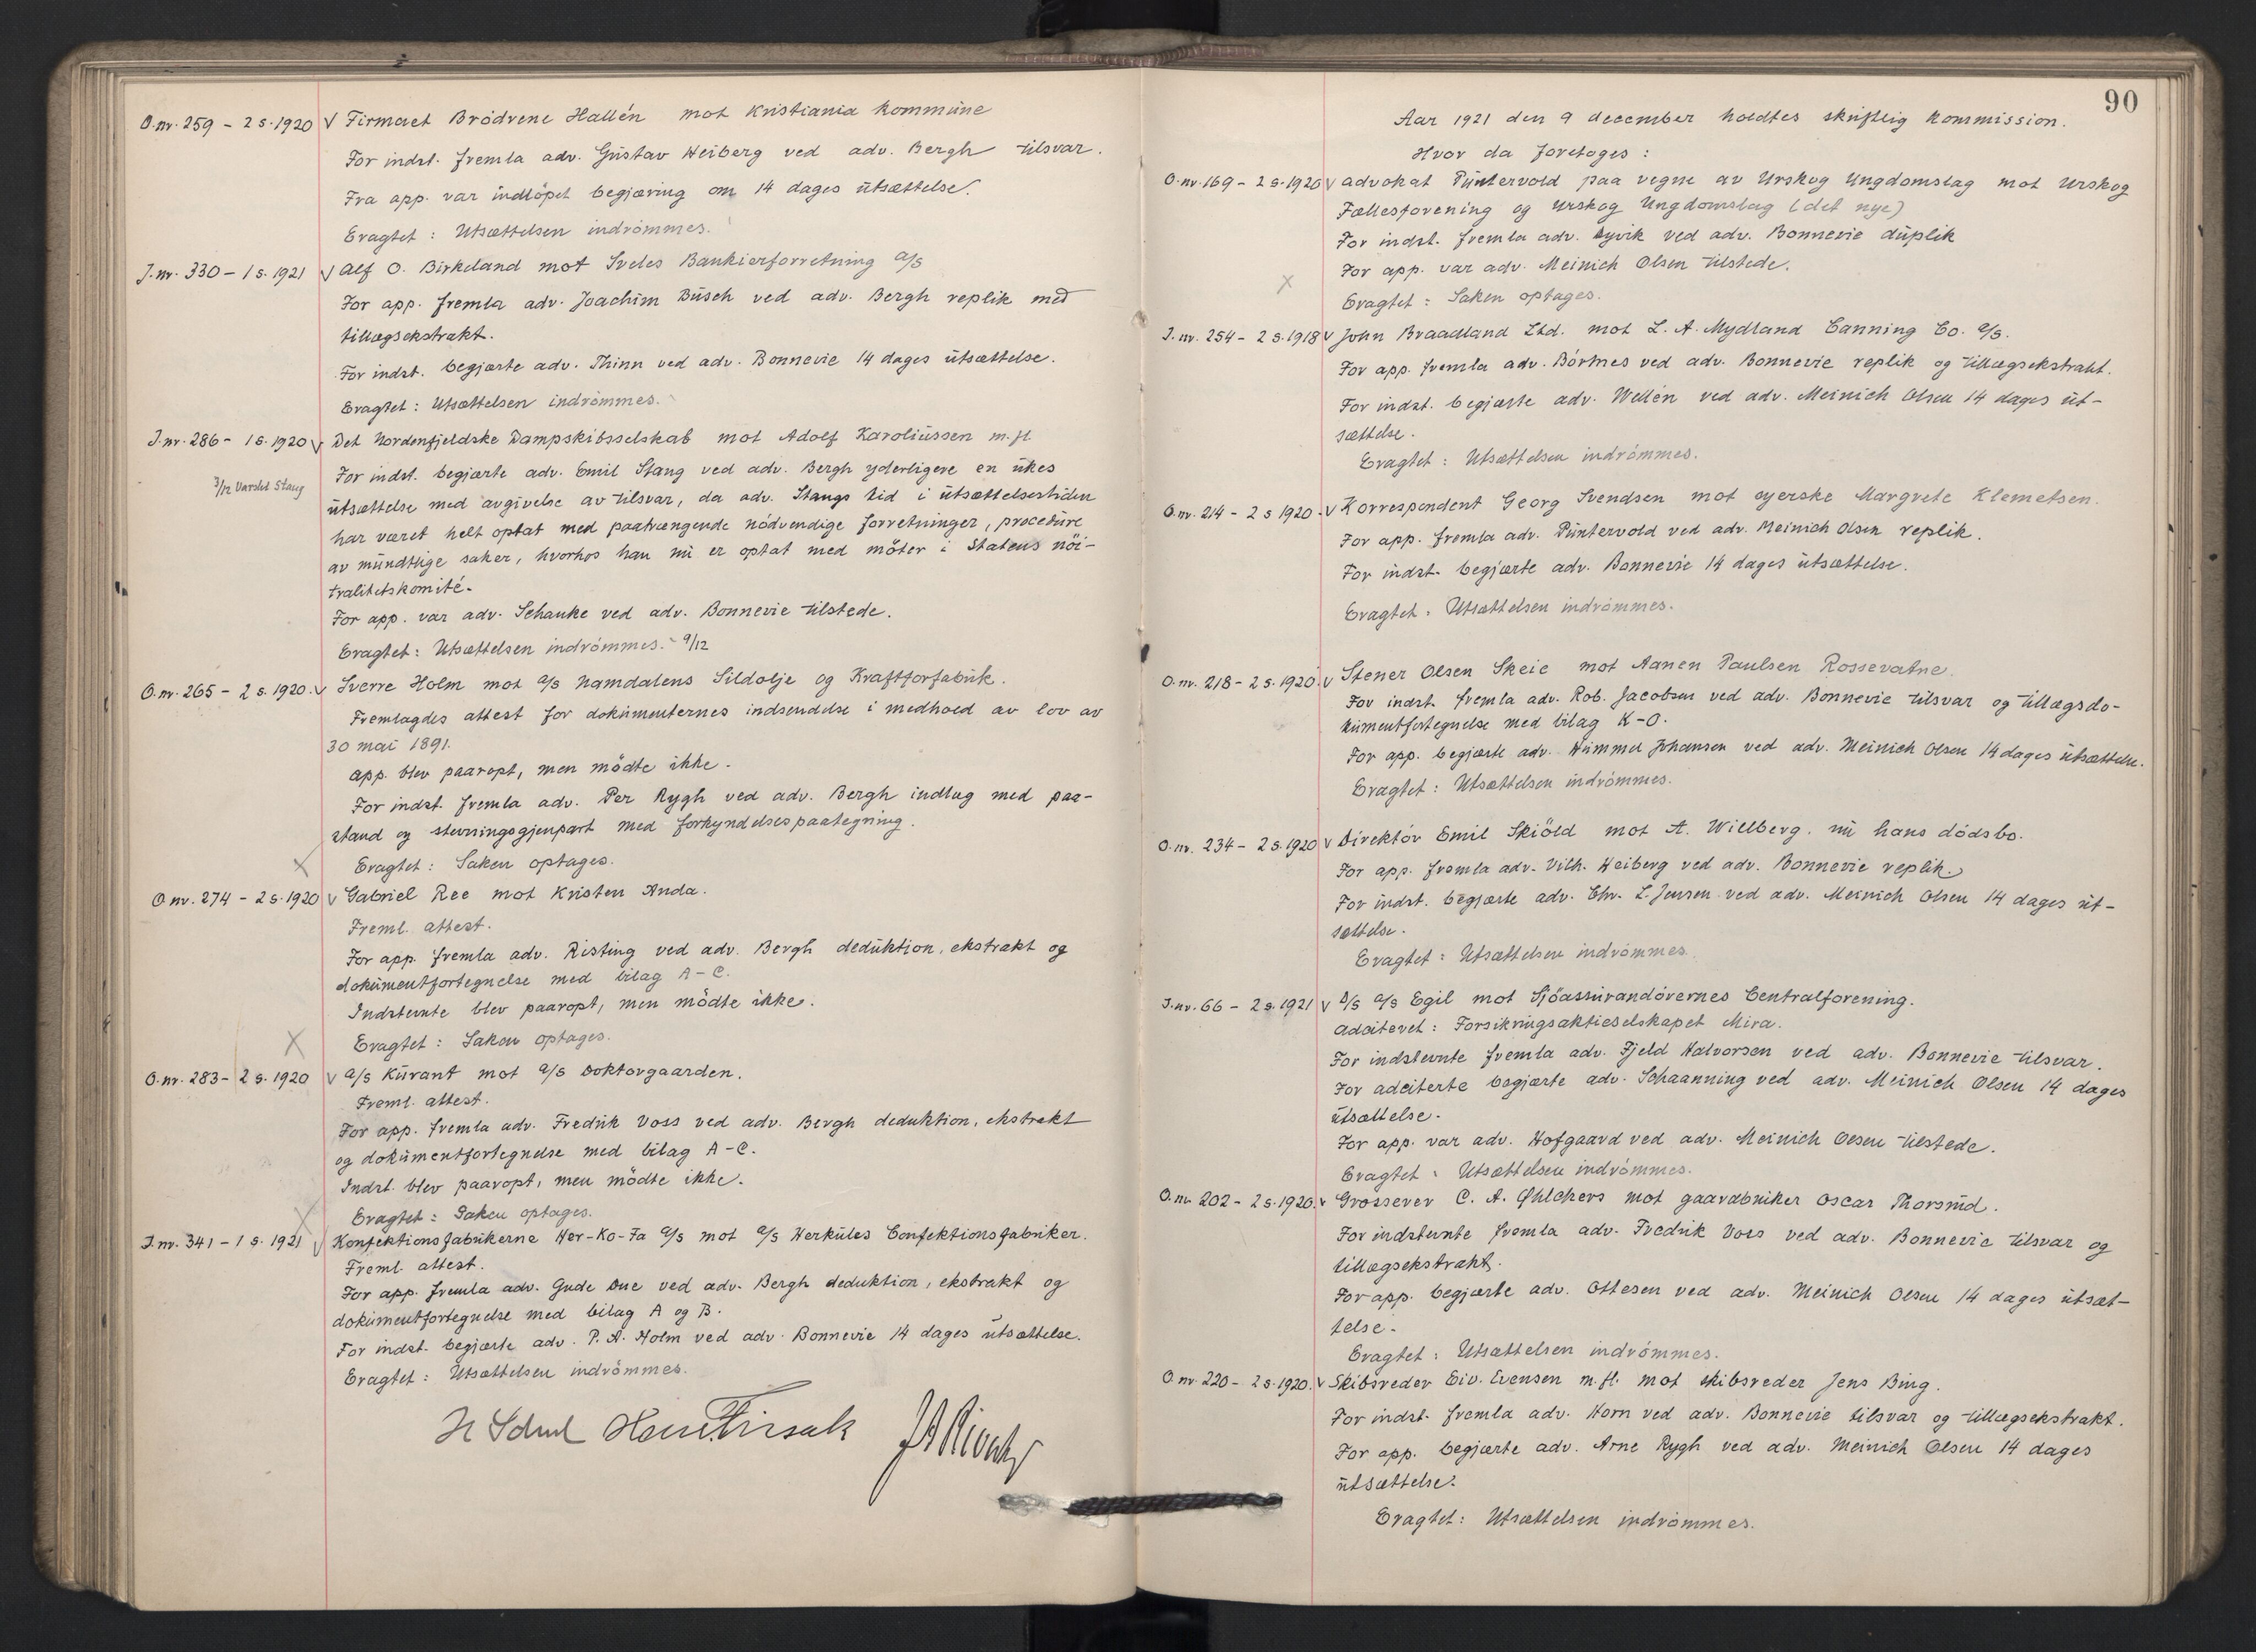 O.nr. 259 - 2 s. 1920 V Firmaet Brödrene Hallén mot Kristiania kommune
For indst. fremla adv. Gustav Heiberg ved adv. Bergh tilsvar.
Fra app. var indlöpet begjæring om 14 dages utsættelse.
Eragtet: Utsættelsen indrömmes.
J.nr. 330 - 1 s. 1921 V Alf O. Birkeland mot Sveles Bankierforretning a/s
For app. fremla adv. Joachim Busch ved adv. Bergh replik med
tillægsekstrakt.
For indst. begjærte adv. Thinn ved adv. Bonnevie 14 dages utsættelse.
Eragtet: Utsættelsen indrömmes.
J.nr. 286 - 1 s. 1920 V Det Nordenfjeldske Dampskibsselskab mot Adolf Karoliussen m.fl.
For indst. begjærte adv. Emil Stang ved adv. Bergh yderligere en ukes
3/12 Varslet Stang
utsættelse med avgivelse av tilsvar, da adv. Stangs tid i utsættelsestiden
har været helt optat med paatrængende nödvendige forretninger, procedure
av mundtlige saker, hvorhos han nu er optat med möter i Statens nöi-
tralitetskomité.
For app. var adv. Schanke ved adv. Bonnevie tilstede.
Eragtet: Utsættelsen indrömmes. - 9/12
O.nr. 265 - 2 s. 1920. V Sverre Holm mot a/s Namdalens Sildolje og Kraftforfabrik.
Fremlagdes attest for dokumenternes indsendelse i medhold av lov av
30 mai 1891.
App. blev paaropt, men mödte ikke.
For indst. fremla adv. Per Rygh ved adv. Bergh indlag med paa-
stand og stevningsgjenpart med forkyndelsespaategning.
X Eragtet: Saken optages.
O.nr. 274 - 2 s. 1920 V Gabriel Ree mot Kristen Anda.
Freml. attest.
For app. fremla adv. Risting ved adv. Bergh deduktion, ekstrakt og
dokumentfortegnelse med bilag A - C.
Indstevnte blev paaropt, men mödte ikke.
X Eragtet: Saken optages.
O.nr. 283 - 2 s. 1920 V a/s Kurant mot a/s Doktorgaarden.
Freml. attest.
For app. fremla adv. Fredrik Voss ved adv. Bergh deduktion, ekstrakt
og dokumentfortegnelse med bilag A - C.
Indst. blev paaropt, men mödte ikke.
X Eragtet: Saken optages.
J.nr. 341 - 1 s. 1921 V Konfektionsfabrikerne Her-Ko-Fa a/s mot a/s Herkules Confektionsfabriker.
Freml. attest.
For app. fremla adv. Gude Due ved adv. Bergh deduktion, ekstrakt og
dokumentfortegnelse med bilag A og B.
For indst. begjærte adv. P. A. Holm ved adv. Bonnevie 14 dages utsættelse.
Eragtet: Utsættelsen indrömmes.
90
Aar 1921 den 9 december holdtes skriftlig kommission.
Hvor da foretoges:
O.nr. 169 - 2 s. 1920 V Advokat Puntervold paa vegne av Urskog Ungdomslag mot Urskog
Fællesforening og Urskog Ungdomslag (det nye)
For indst. fremla adv. Dyvik ved adv. Bonnevie duplik
For app. var adv. Meinich Olsen tilstede.
X Eragtet: Saken optages.
J.nr. 254 - 2 s. 1918 V John Braadland Ltd. mot L. A. Mydland Canning Co. a/s.
For app. fremla adv. Börhnes ved adv. Bonnevie replik og tillægsekstrakt.
For indst. begjærte adv. Wellén ved adv. Meinich Olsen 14 dages ut-
sættelse.
Eragtet: Utsættelsen indrömmes.
O.nr. 214 - 2 s 1920. V Korrespondent Georg Svendsen mot syerske Margrete Klemetsen.
For app. fremla adv. Puntervold ved adv. Meinich Olsen replik.
For indst. begjærte adv. Bonnevie 14 dages utsættelse.
Eragtet: Utsættelsen indrömmes.
O.nr. 218 - 2 s. 1920. V Stener Olsen Skeie mot Aanen Paulsen Rossevatne.
For indst. fremla adv. Rob. Jacobsen ved adv. Bonnevie tilsvar og tillægsdo-
kumentfortegnelse med bilag K - O.
For app. begjærte adv. Hummel Johansen ved adv. Meinich Olsen 14 dages utsættelse.
Eragtet: Utsættelsen indrömmes.
O.nr. 234 - 2 s. 1920 V Direktör Emil Skiöld mot A. Willberg. nu hans dödsbo.
For app. fremla adv. Vilh. Heiberg ved adv. Bonnevie replik.
For indst. begjærte adv. Chr. L. Jensen ved adv. Meinich Olsen 14 dages ut-
sættelse.
Eragtet: Utsættelsen indrömmes.
J.nr. 66 - 2 s. 1921 V D/s a/s Egil mot Sjöassurandörernes Centralforening.
Adciteret: Forsikringsaktieselskapet Mira.
For indstevnte fremla adv. Fjeld Halvorsen ved adv. Bonnevie tilsvar.
For adciterte begjærte adv. Schaanning ved adv. Meinich Olsen 14 dages
utsættelse.
For app. var adv. Hofgaard ved adv. Meinich Olsen tilstede.
Eragtet: Utsættelsen indrömmes.
O.nr. 202 - 2 s. 1920. V Grosserer C. A. Øhlckers mot gaardbruker Oscar Thorsrud.
For indstevnte fremla adv. Fredrik Voss ved adv. Bonnevie tilsvar og
tillægsekstrakt.
For app. begjærte adv. Ottesen ved adv. Meinich Olsen 14 dages utsæt-
telse.
Eragtet: Utsættelsen indrömmes.
O.nr. 220 - 2 s. 1920. V Skibsreder Eiv. Evensen m.fl. mot skibsreder Jens Bing.
For indst. fremla adv. Horn ved adv. Bonnevie tilsvar og tillægsekstrakt.
For app. begjærte adv. Arne Rygh ved adv. Meinich Olsen 14 dages
utsættelse.
Eragtet: Utsættelsen indrömmes.